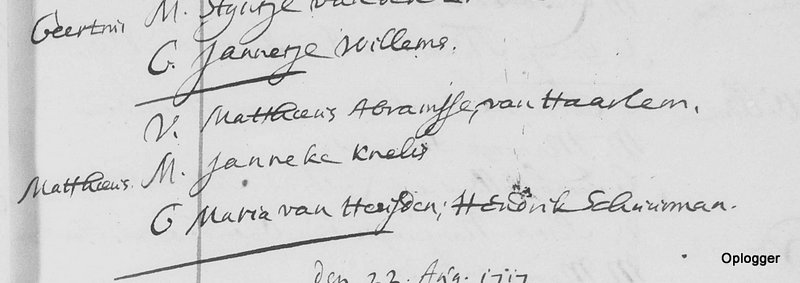 Geertrui M. Styntje van den
G. Jannetje Willems.
V. Mattheus Abramsse, van Haarlem.
Mattheus. M. Janneke Knelis
G Maria van Heusden; Hendrik Schuurman.
den 22. Aug. 1717
Oplogger